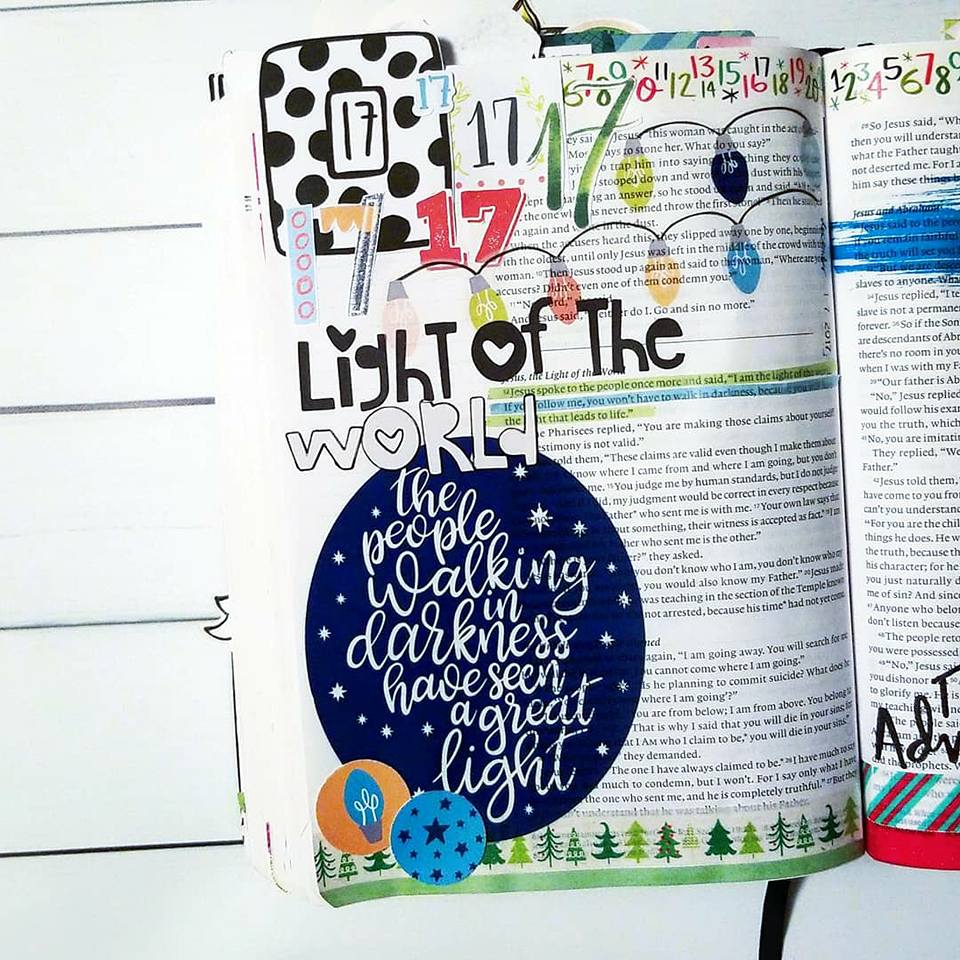 17
17
17
17
17
17
*7 8 9 11 13 15 *17 *19
6 10 12 14 * 16 18
Light of The
World
the
people
walking
in
darkness
have seen
a great
light
cey sai Jesus this woman was caught in the act of
Mos ays to stone her. What do you say?"
ey to trap him into saying something they co
J stooped down and wro dust with his
ng an answer, so he stood and said "Al
the one who has never sinned throw the first stone!" Then he
n again and w in the dust.
when the accusers heard this, they slipped away one by one, beginning
with the oldest, until only Jesus was left in the middle of the crowd with th
woman. 10Then Jesus stood up again and said to the woman, "Where are you
accusers? Didn't even one of them condemn you?"
And Jesus said, "Neither do I. Go and sin no more."
Jesus, the Light of the World
12Jesus spoke to the people once more and said, "I am the light of the
If you follow me, you won't have to walk in darkness, because you
the light that leads to life."
The Pharisees replied, "You are making those claims about yourself
testimony is not valid."
told them, "These claims are valid even though I make them about
know where I came from and where I am going, but you don't
15You judge me by human standards, but I do not judge
if I did, my judgment would be correct in every respect because
Father* who sent me is with me. 17Your own law says that
about something, their witness is accepted as fact.* 18I am
ther who sent me is the other."
er?" they asked.
you don't know who I am, you don't know who my
, you would also know my Father." 20Jesus made
was teaching in the section of the Temple known
not arrested, because his time* had not yet come.
again, "I am going away. You will search for me
cannot come where I am going."
is he planning to commit suicide? What does he
where I am going'?"
are from below; I am from above. You belong to
That is why I said that you will die in your sins; for
at I AM who I claim to be,* you will die in your sins."
they demanded.
The one I have always claimed to be.* 26I have much to say
much to condemn, but I won't. For I say only what I have
the one who sent me, and he is completely truthful." 27But they
understand that he was talking about his Father.
1 2 3 4 5 6 7 8 9
28So Jesus said, "Wh
then you will understa
what the Father taught
not deserted me. For I a
him say these things
Jesus and Abraham
Jesus said to the peo
if you remain faithful
the truth will set you
"But we are
slaves to anyone. Wha
34Jesus replied, "I te
slave is not a permanen
forever. 36So if the Son
are descendants of Abr
there's no room in you
when I was with my Fa
39"Our father is Ab
"No," Jesus replied
would follow his exam
you the truth, which
41No, you are imitatin
They replied, "We
Father."
42Jesus told them, "
have come to you from
can't you understand
"For you are the chil
things he does. He w
the truth, because th
his character; for he
you just naturally d
me of sin? And since
47Anyone who belon
don't listen because
48The people reto
you were possessed
49"No," Jesus sa
you dishonor
to glorify me. He is
my teaching will
The people said
Adv